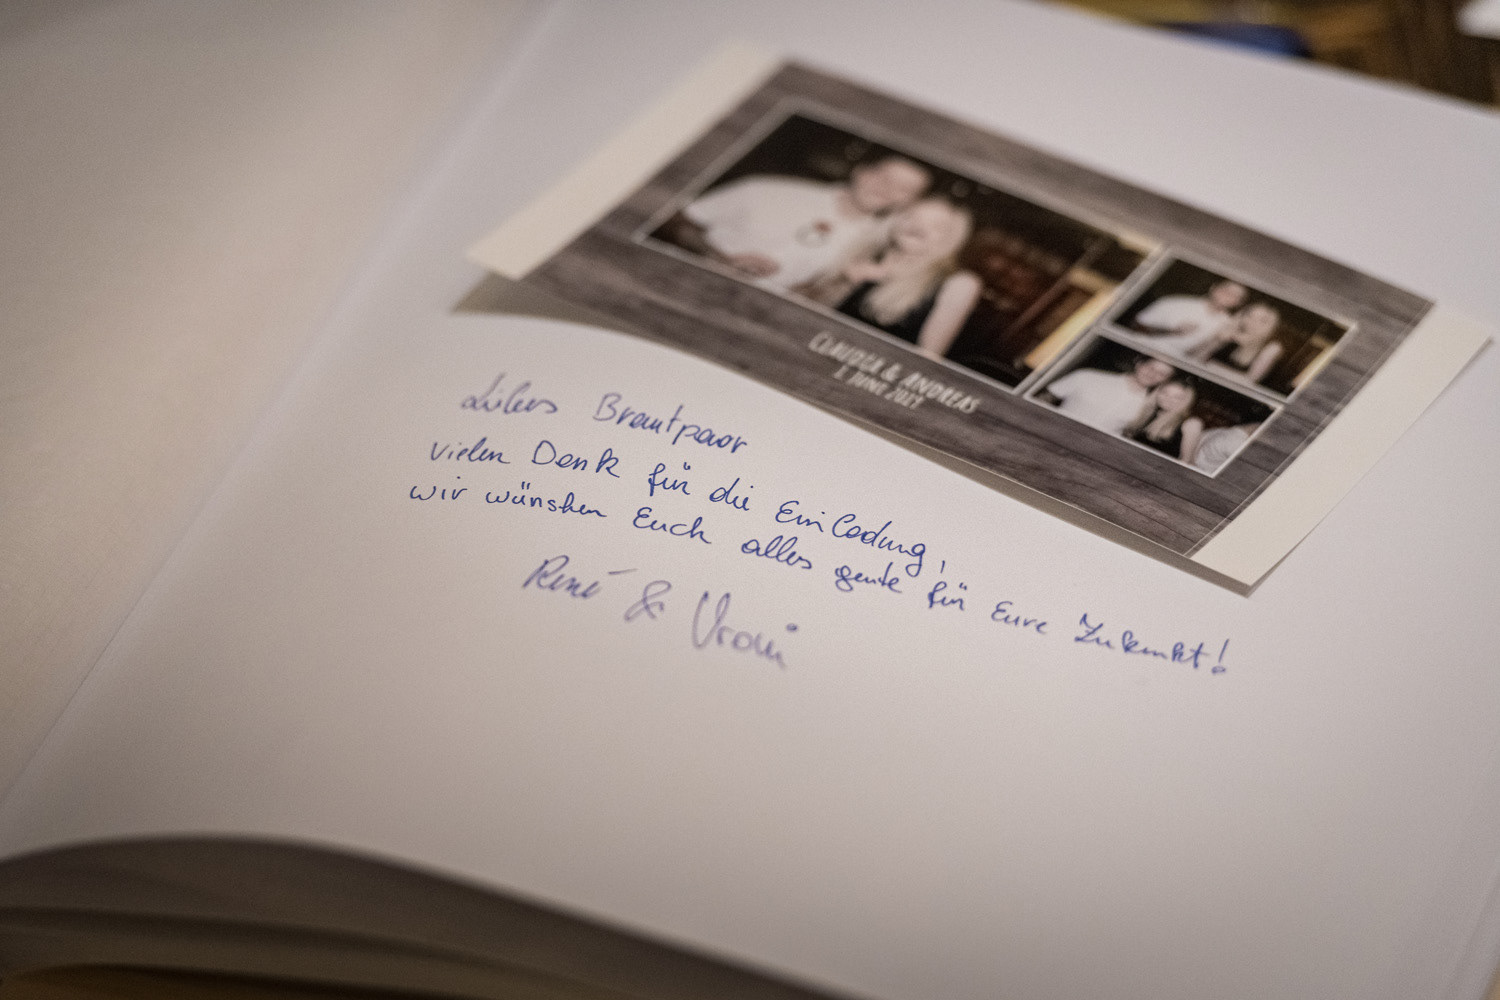 CLAUDIA & ANDREAS
1. JUNE 2019
Liebes Brautpaar
vielen Dank für die Einladung,
wir wünschen Euch alles gute für Eure Zukunft!
René & Vroni